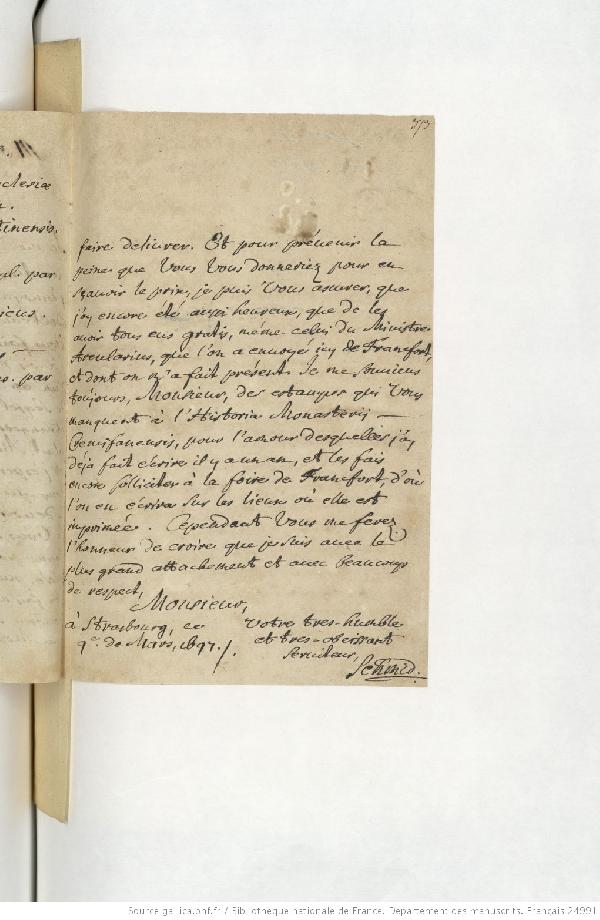 353
faire deliurer. Et pour préuenir la
peine que Vous Vous donneriez pour en
sçauoir le prix, je puis Vous asurer, que
j'ay encore été aussi heureux, que de les
auoir tous eus gratis, méme celui du Ministre
Arcularius, que l'on a enuoyé icy de Francfort,
et dont on m'a fait présent. Je me souuiens
toûjours, Monsieur, des estampes qui Vous
manquent à l'Historia Monasterij
Cremifanensis, pour l'amour desquelles j'ay
déja fait écrire il y a un an, et les fais
encore solliciter à la foire de Francfort, d'où
l'on en écrira sur les lieux où elle est
imprimée. Cependant Vous me ferez
l'honneur de croire que je suis auec le
plus grand attachement et auec beaucoup
de respect,
Monsieur,
à Strasbourg, ce
9e. de Mars, 1697./.
Votre tres-humble
et tres-obeissant
seruiteur,
Schmid.
clesiæ
tinensis.
par
par
Source gallica.bnf.fr / Bibliothèque nationale de France. Département des manuscrits. Français 24991